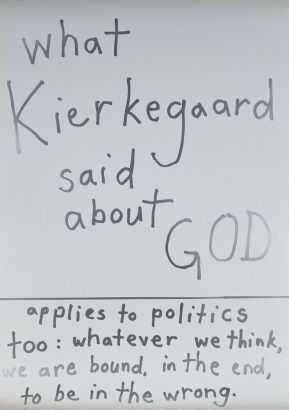 what
Kierkegaard
said
about
GOD
applies to politics
too: whatever we think,
we are bound, in the end,
to be in the wrong.